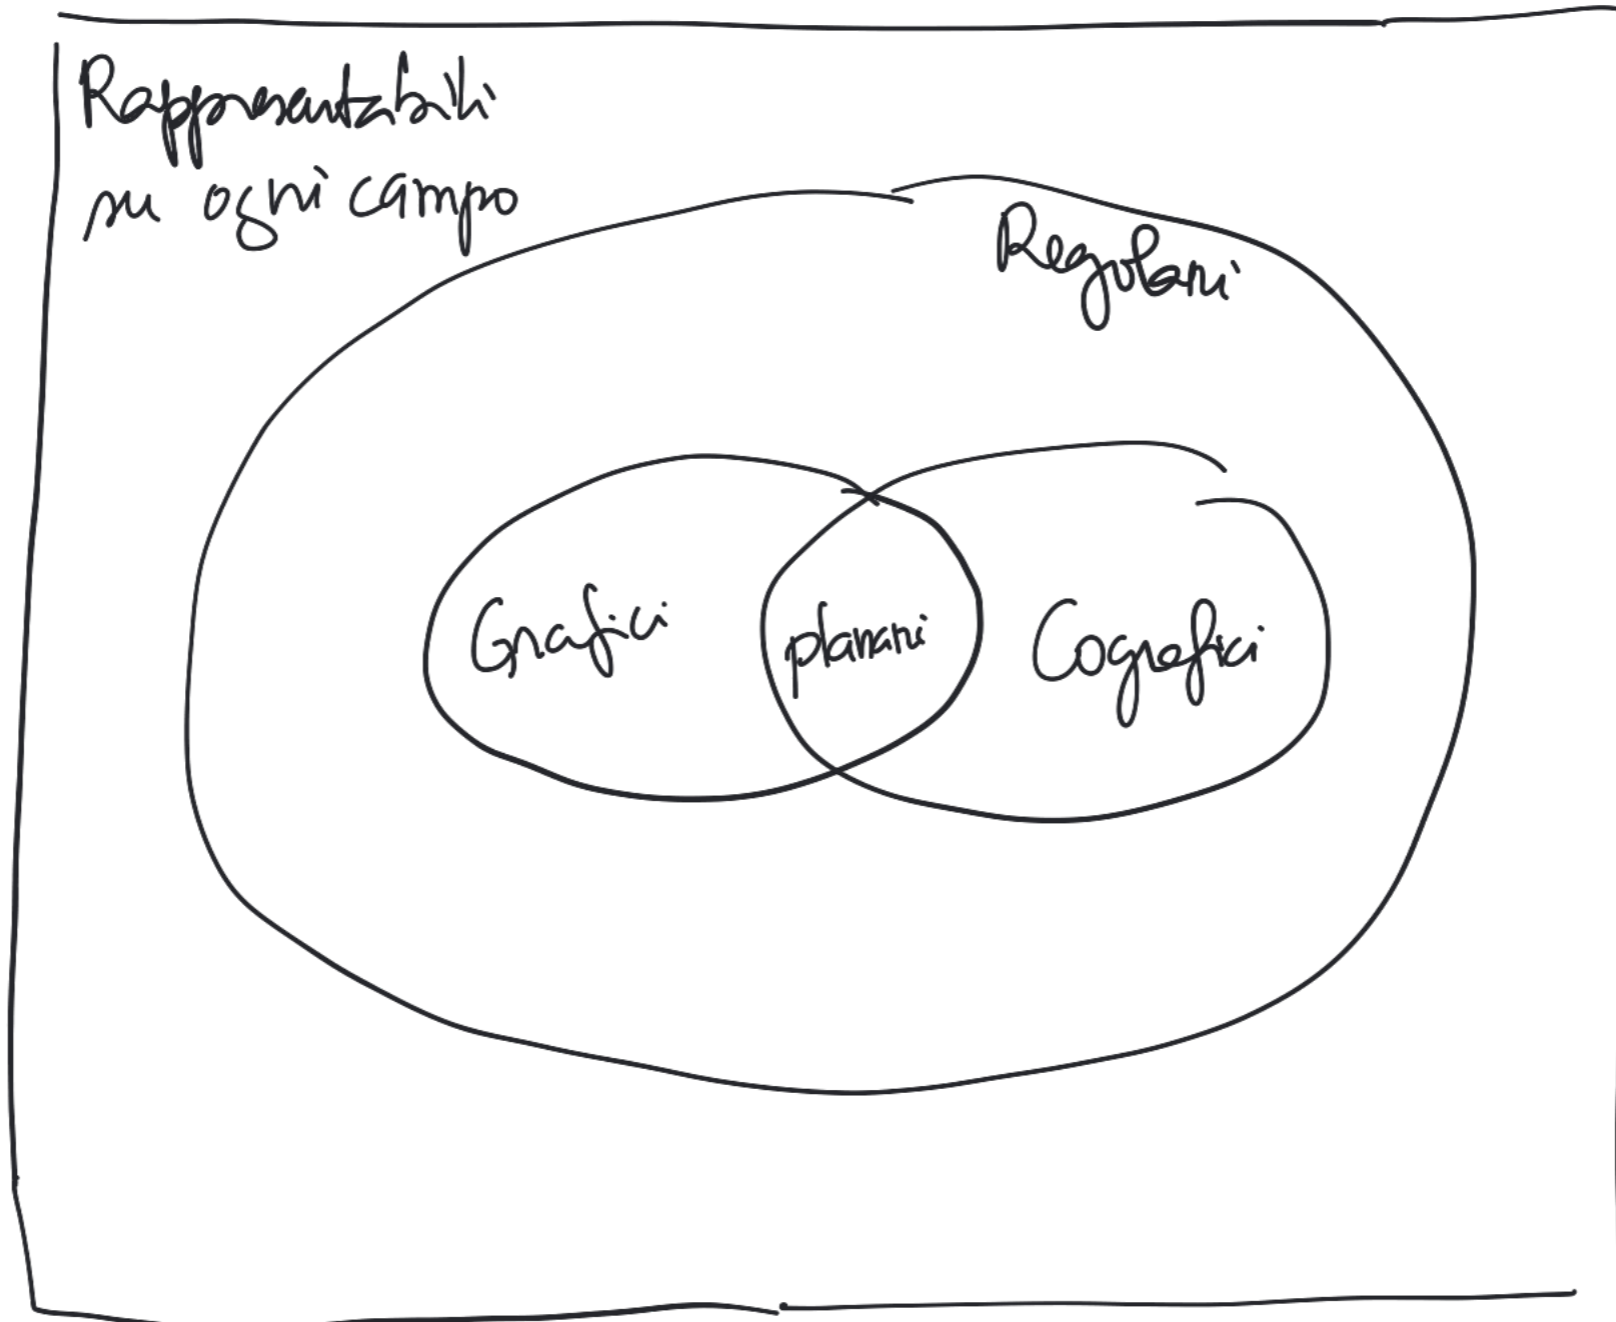 Rappresentabili
su ogni campo
Regolari
Grafici
planari
Cografici